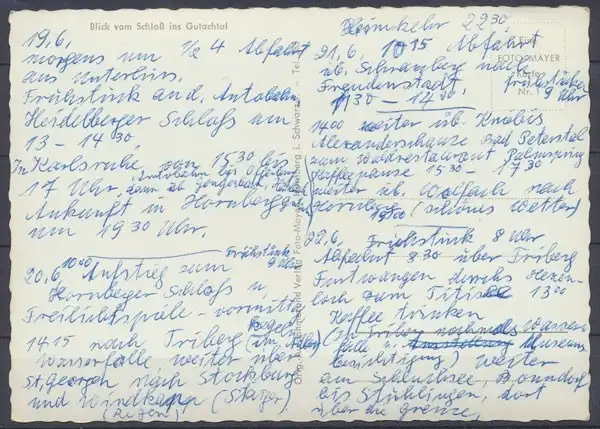 Blick vom Schloß ins Gutachtal
19.6.
morgens um 1/2 4 Abfahrt
aus Unterlüss.
Frühstück a. d. Autobahn
Heidelberger Schloss am
13 - 14 30,
In Karlsruhe von 15 30 bis
17 Uhr, Autobahn bis Offenburg
dann ab
Ankunft in Hornberg
um 19 30 Uhr.
Frühstück
9 Uhr
20.6. 10 00 Aufstieg zum
Hornberger Schloss u
Freilichtspiele - vormittag
14 15 nach Triberg
Wasserfälle weiter über
St. Georgen nach Stockburg
und Windkapf (Stazer)
(Regen)
Heimkehr 22 30
21.6. 10 15 Abfahrt
Frühstücken
9 Uhr
üb. Schramberg nach
Freudenstadt
11 30 - 14 00
14 00 weiter üb. Kniebis
Alexanderschanze Bad Peterstal
zum Waldrestaurant Palmspring
Kaffeepause 15 30 - 17 30
weiter üb. Wolfach nach
Hornberg (schönes Wetter)
19 00
22.6. Frühstück 8 Uhr
Abfahrt 8 30 über Triberg
Furtwangen durchs Hexen-
loch zum Titisee 13 00
Kaffee trinken
(In Triberg nochmals Wasser-
fälle u. Museums
besichtigung) weiter
am Schluchsee, Bonndorf
bis Stühlingen, dort
über die Grenze,
FOTO-MAYER